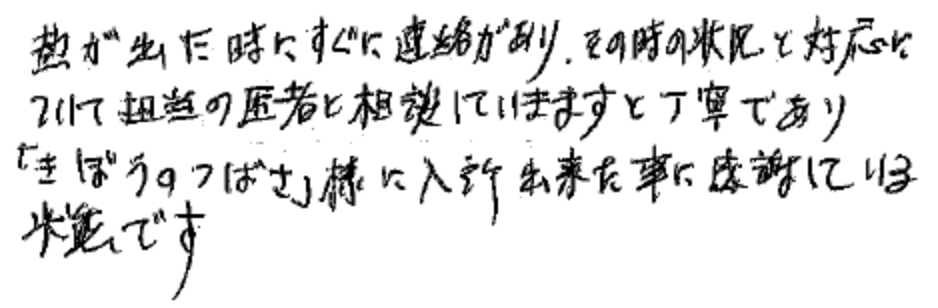 熱が出た時にすぐに連絡があり、その時の状況と対応に
ついて担当の医者と相談していますと丁寧であり
「きぼうのつばさ」様に入所出来た事に感謝している
状態です